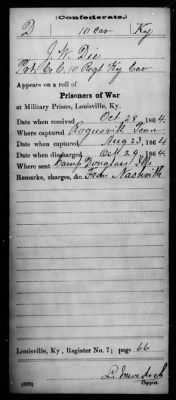 (Confederate.)
D 10 Cav Ky
J. W. Die
Pvt Co C, 10 Regt Ky Cav
Appears on a roll of
Prisoners of War
at Military Prison, Louisville, Ky.
Date when received Oct 28, 1864.
Where captured Rogersville Tenn
Date when captured Aug 23, 1864
Date when discharged Oct 29, 1864
Where sent Camp Douglass Ills
Remarks, charges, &c. From Nashville
Louisville, Ky., Register No. 7; page 66
Copyist.